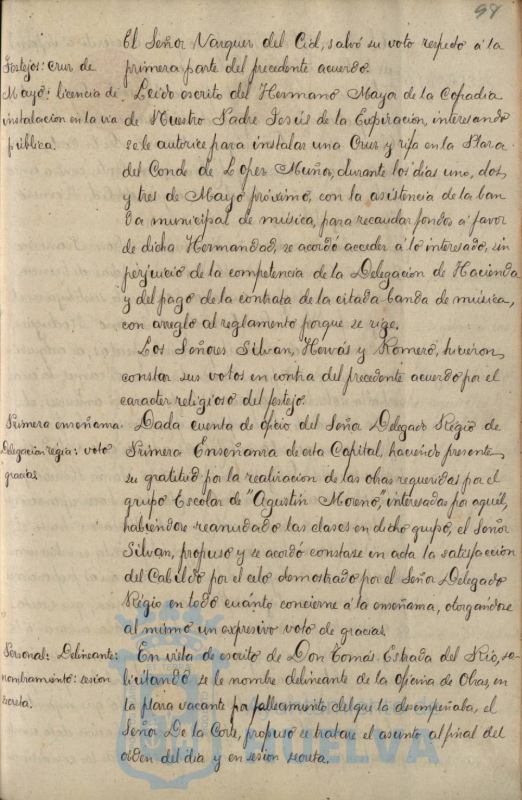 98
El Señor Vazquez del Cid, salvó su voto respecto á la
primera parte del precedente acuerdo.
Festejos: cruz de
Mayo: licencia de
instalacion en la via
pública.
Leido escrito del Hermano Mayor de la Cofradia
de Nuestro Padre Jesús de la Expiración, interesando
se le autorice para instalar una Cruz y rifa en la Plaza
del Conde de Lopez Muñoz, durante los dias uno, dos
y tres de Mayo próximo, con la asistencia de la ban
da municipal de música, para recaudar fondos á favor
de dicha Hermandad, se acordó acceder á lo interesado, sin
perjuicio de la competencia de la Delegacion de Hacienda
y del pago de la contrata de la citada banda de música,
con arreglo al reglamento porque se rige.
Los Señores Silvan, Hervás y Romero, hicieron
constar sus votos en contra del precedente acuerdo por el
caracter religioso del festejo.
Primera enseñanza.
Delegacion regia: voto
gracias.
Dada cuenta de oficio del Señor Delegado Regio de
Primera Enseñanza de esta Capital, haciendo presente
su gratitud por la realizacion de las obras requeridas por el
grupo Escolar de "Agustin Moreno", interesadas por aquél,
habiendose reanudado las clases en dicho grupo, el Señor
Silvan, propuso y se acordó constase en acta la satisfaccion
del Cabildo por el celo demostrado por el Señor Delegado
Régio en todo cuánto concierne á la enseñanza, otorgandose
al mismo un expresivo voto de gracias.
Personal: Delineante:
nombramiento: sesion
secreta.
En vista de escrito de Don Tomás Estrada del Rio, so-
licitando se le nombre delineante de la Oficina de Obras, en
la plaza vacante por fallecimiento del que la desempeñaba, el
Señor De la Corte, propuso se tratare el asunto al final del
órden del dia y en sesion secreta.
HUELVA